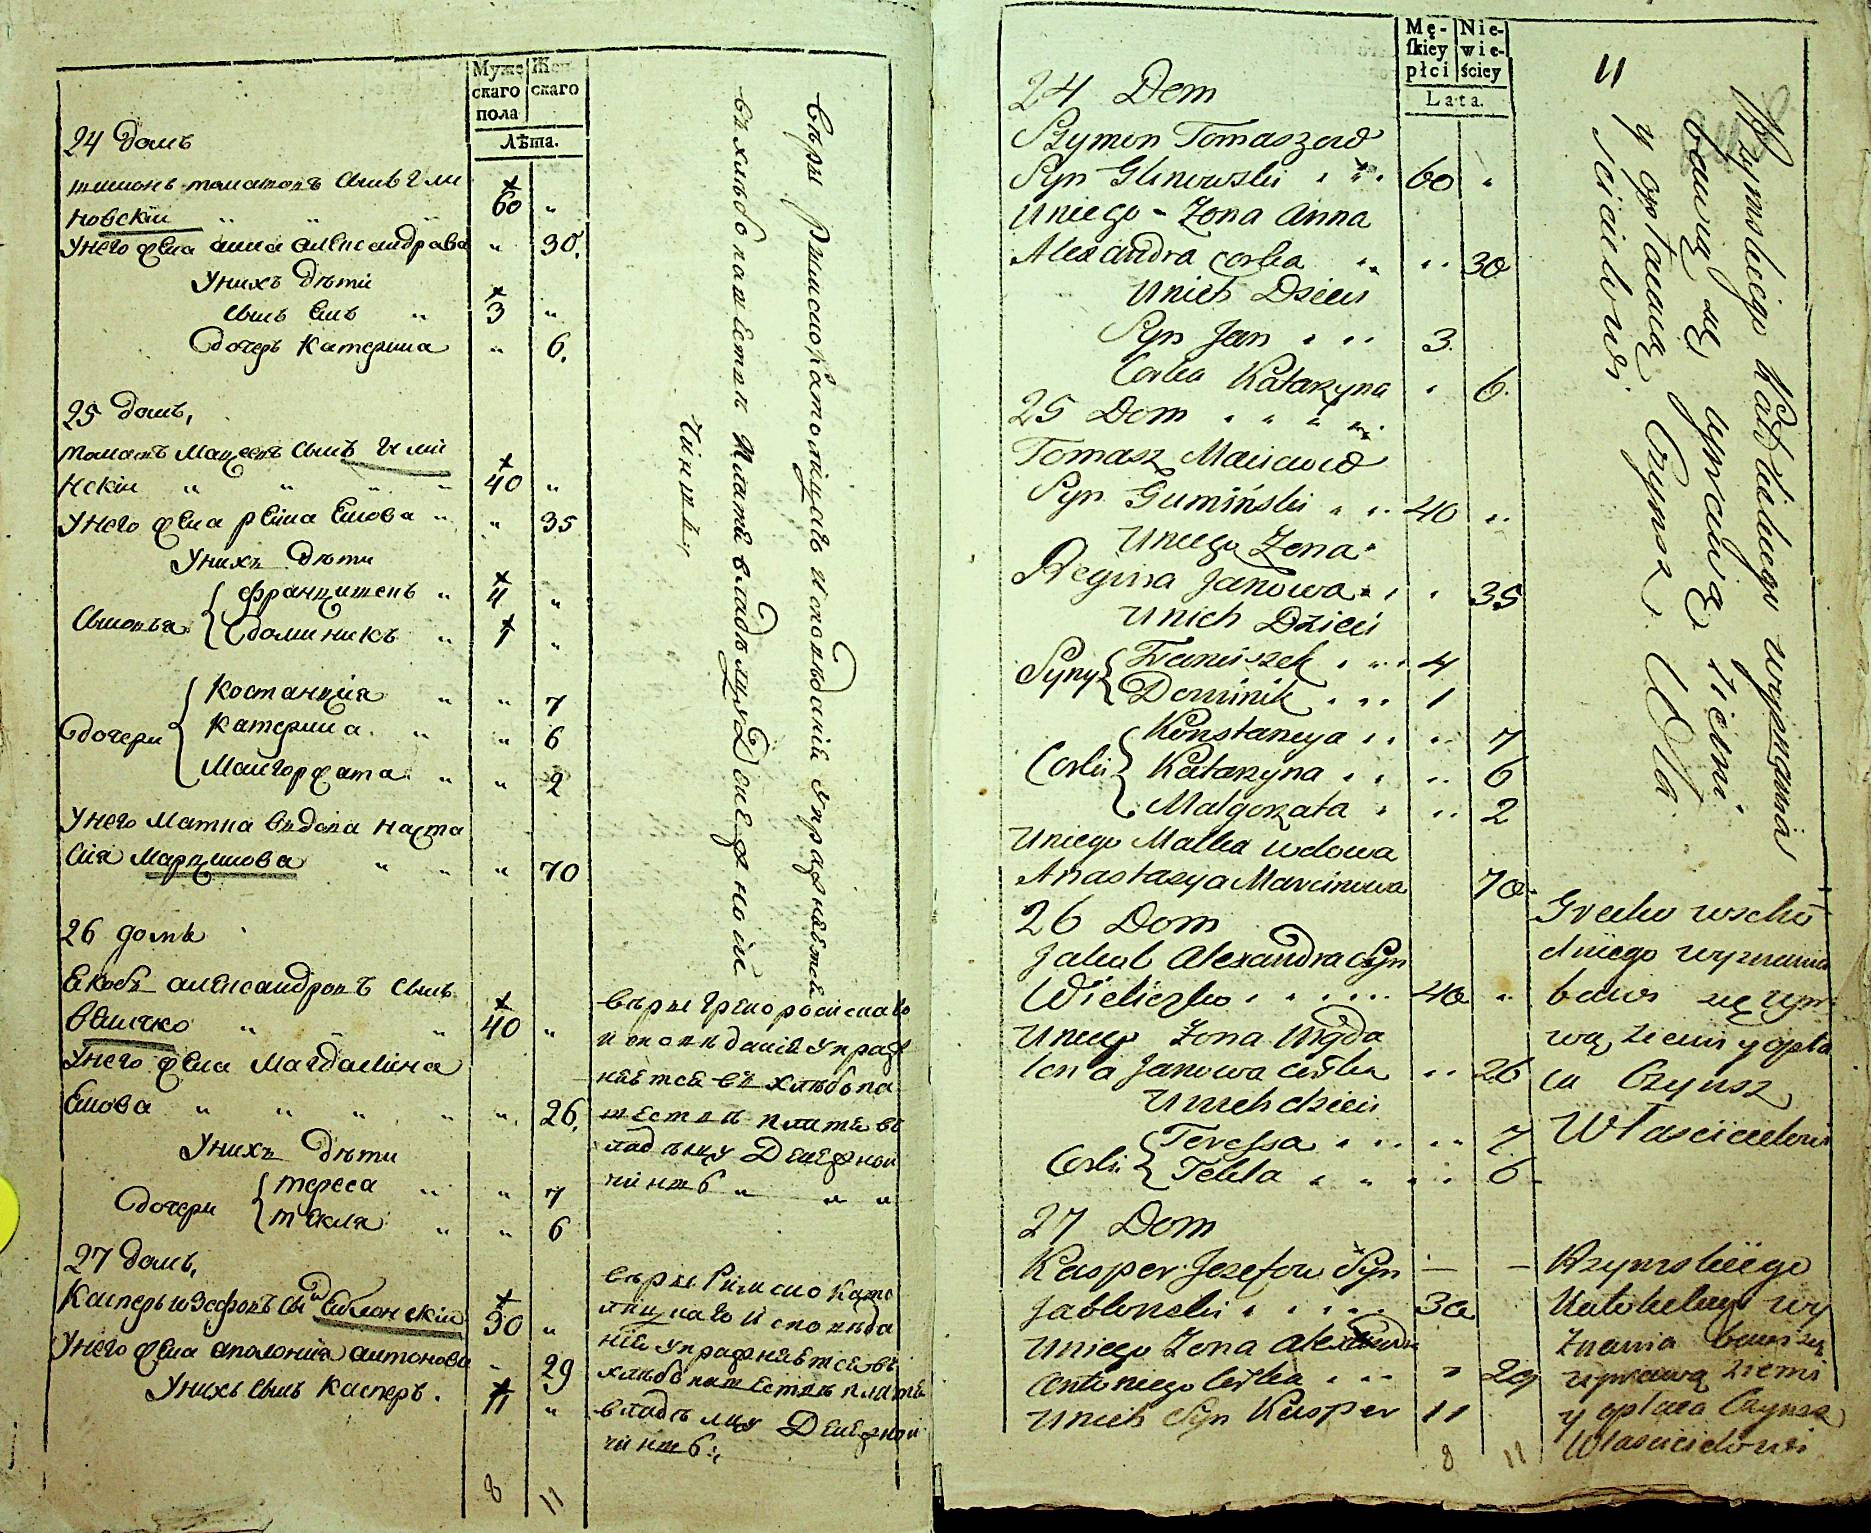 Муже
скаго
пола
Жен
скаго
Лѣта.
24 домъ
шимонъ томашовъ сынъ Гли
новскiи " " "
60 "
У него жена анна александрова " 30.
У нихъ дѣти
сынъ Янъ " 3 "
дочерь Катерина " 6.
25 домъ,
томашъ Мацеевъ сынъ Гуми
нскiи " " " " 40 "
У него жена регина Янова " " 35
У нихъ дѣти
Сыновья { францишекъ " 4 "
доминикъ " 1 "
дочери { Костанцiя " " 7
Катерина " " 6
Малгоржата " " 2
У него матка вдова наста
сiя Марцинова " " " 70
26 домъ
Якобъ александровъ сынъ
Величко " " " 40 "
У него жена Магдалина
Янова " " " " " 26.
У нихъ дѣти
дочери { тереса " " 7
текля " " 6
27 домъ,
Касперъ иозефовъ сынъ Яблонскiи 30 "
У него жена аполонiя антонова " 29
У нихъ сынъ Касперъ. 11 "
8 11
Вѣры римскокатолицкаго исповѣданiй упражняется
въ хлѣбопашествѣ платятъ владѣльцу денежной
чиншъ,
вѣры грекоросiискаго
исповѣданiй упраж
няется въ хлѣбопа
шествѣ платитъ в
ладѣльцу Денежной
чиншъ " " "
вѣры Римско като
лицкаго исповѣда
нiй упражняется въ
хлѣбопашествѣ платитъ
владѣльцу Денежной
чиншъ.
Mę-
ſkiey
płci
Nie-
wie-
ściey
Lata.
11
24 Dom
Szymon Tomaszow
Syn Glinowski 60 "
Uniego - Zona Anna
Alexandra corka " " 30
Unich Dzieci
Syn Jan 3.
Corka Katarzyna 6.
25 Dom
Tomasz Maciciow
Syn Gumiński 40 "
Uniego Zena
Regina Janowa 35
Unich Dzieci
Syny { Franciszek 4
Dominik 1
Corki { Konstancya 7
Katarzyna 6
Malgorzata 2
Uniego Matka wdowa
Anastazya Marcinowa 70
26 Dom
Jakub Alexandra Syn
Wieliczko 40 "
Uniego Zona Magda
lena Janowa corka 26
Unich dzieci
Corki { Teressa 7
Tekla 6
27 Dom
Kasper Jozefow Syn — —
Jablonski 30
Uniego Zona
Antoniego Corka 29
Unich Syn Kasper 11
8 11
Rzymskiego Katolickiego wyznania
bawią się uprawią ziemi
y opłacaią Czynsz Wła
scicielowi.
Grecko wscho
dniego wyznania
bawi się upra
wą ziemi y opła
ca Czynsz
Właścicielowi
Rzymskiego
Katolickiego wy
znania bawi się
uprawą ziemi
y opłaca Czynsz
Własccicielowi